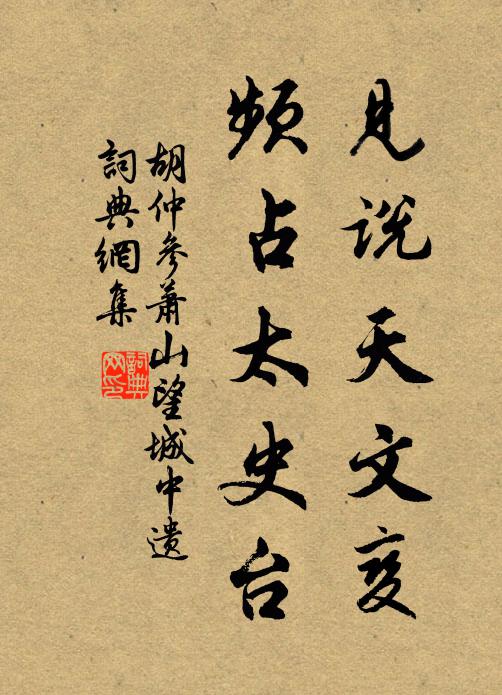 見说天文变
频占太史台
胡仲參蕭山望城中遺
詞典網集
詞典网印